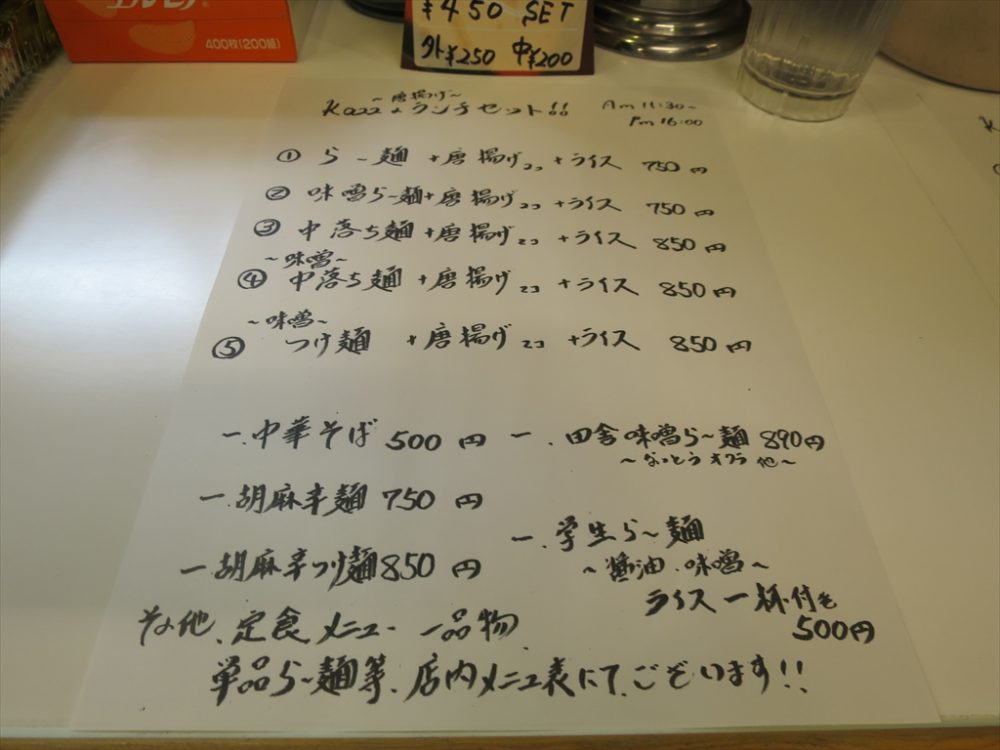 400枚(200組)
¥450 SET
外¥250 中¥200
～唐揚げ～
ランチセット!! Am 11:30～
Pm 16:00
① らー麺 + 唐揚げ2コ + ライス 750円
② 味噌らー麺 + 唐揚げ2コ + ライス 750円
③ 中落ち麺 + 唐揚げ2コ + ライス 850円
～味噌～
④ 中落ち麺 + 唐揚げ2コ + ライス 850円
～味噌～
⑤ つけ麺 + 唐揚げ2コ + ライス 850円
一、中華そば 500円
一、胡麻辛麺 750円
一、胡麻辛つけ麺 850円
一、田舎味噌ら～麺 890円
～なっとう オクラ 他～
一、学生ら～麺
～醤油、味噌～
ライス一杯付き
500円
その他、定食メニュー 一品物
単品ら～麺等、店内メニュー表にて、ございます!!